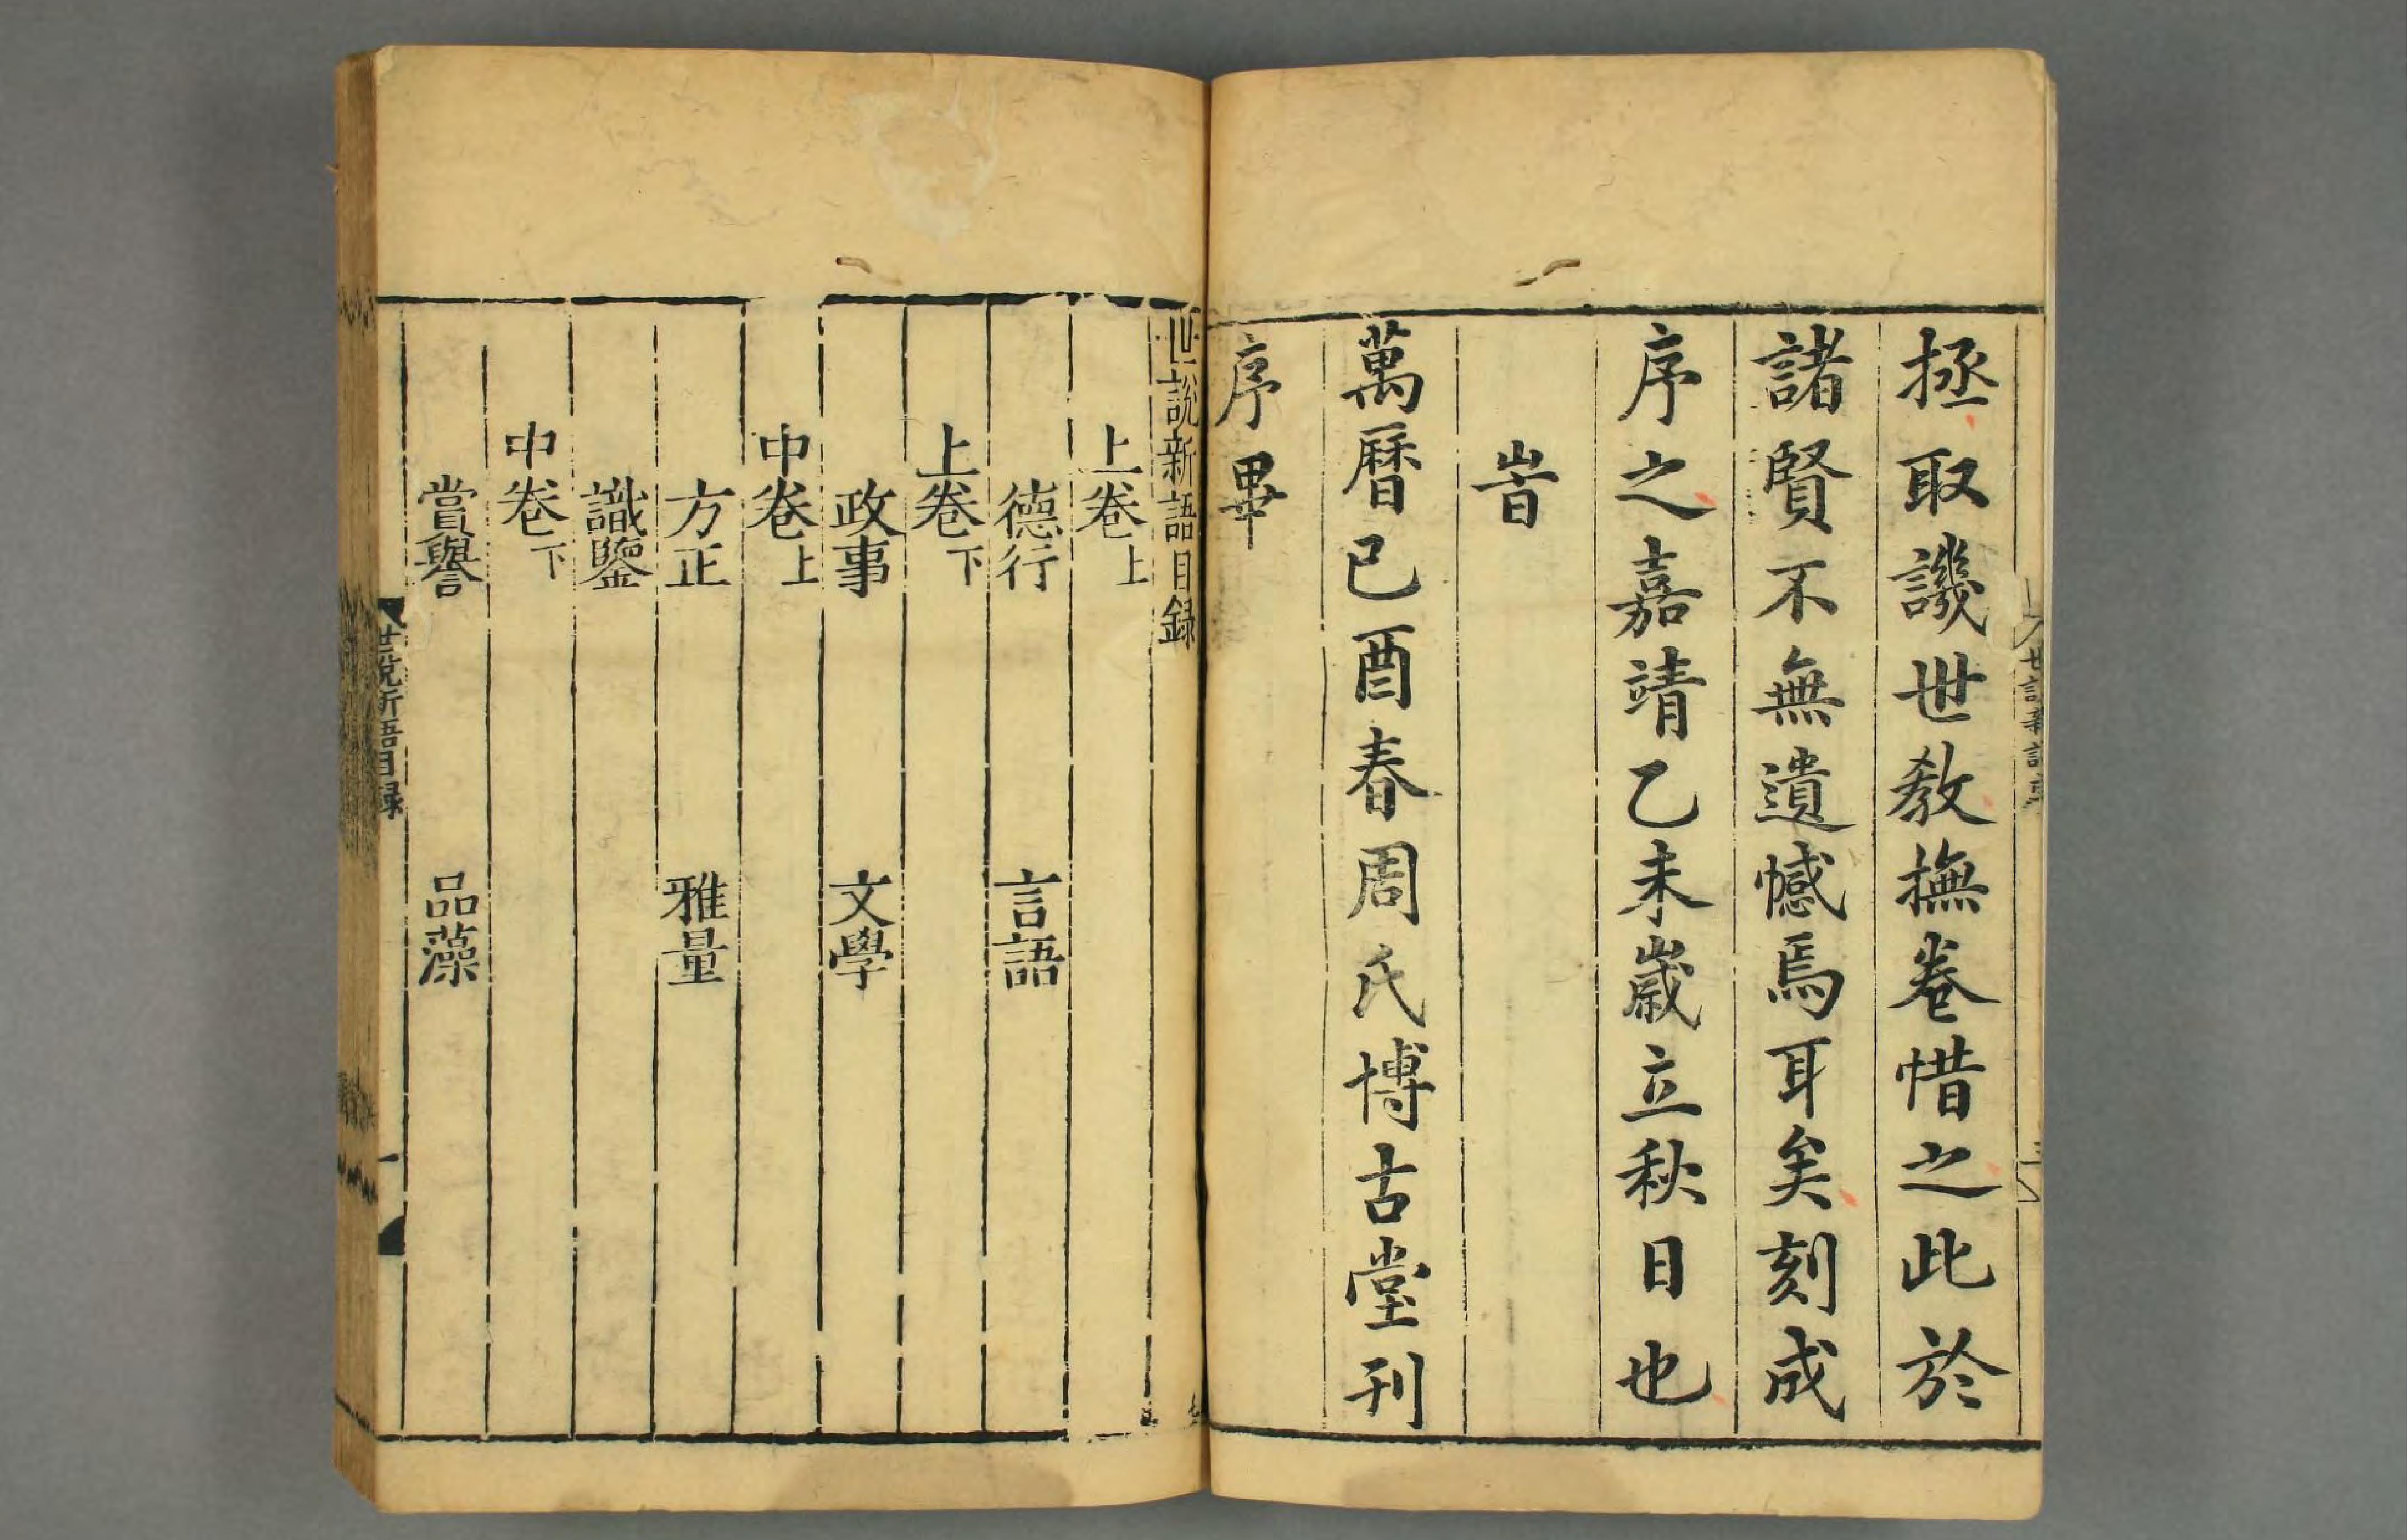 拯取譏世敎撫卷惜之此於
諸賢不無遺憾焉耳矣刻成
序之嘉靖乙未歲立秋日也
旹
萬曆己酉春周氏博古堂刊
序畢
世說新語目録
上卷上
德行 言語
上卷下
政事 文學
中卷上
方正 雅量
識鑒
中卷下
賞譽 品藻
世說新語目録 一